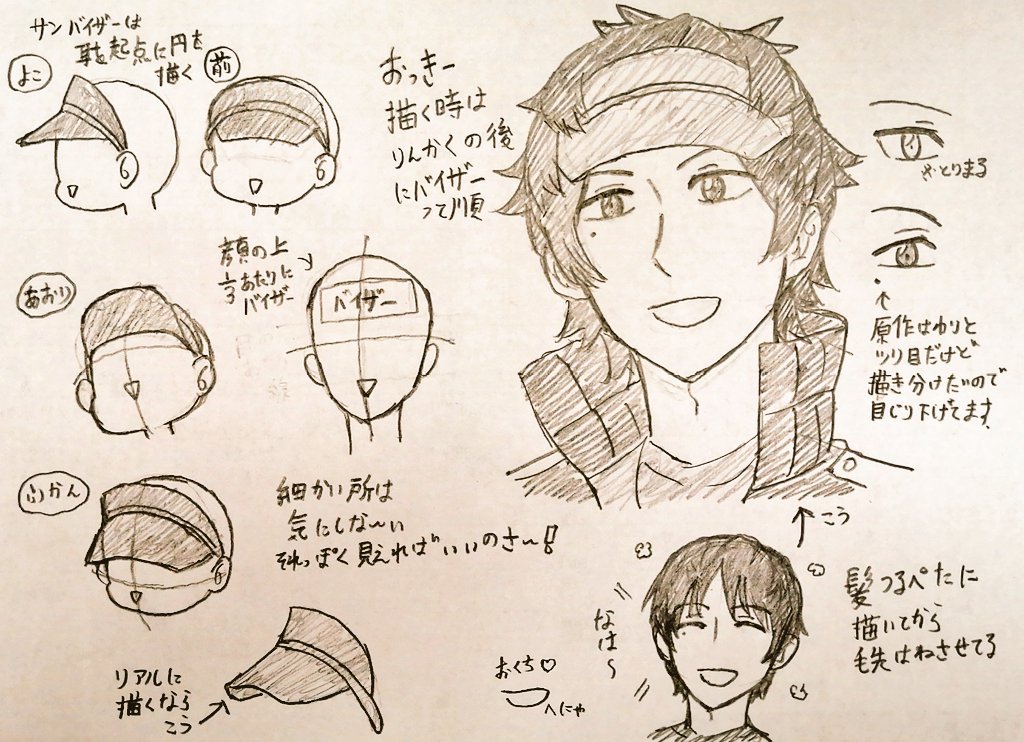 サンバイザーは
耳を起点に円を
描く
よこ
前
おっきー
描く時は
りんかくの後
にバイザー
って順
あおり
顔の上
1/3あたりに
バイザー
バイザー
とりまる
↑
原作はゆりと
ツリ目だけど
描き分けたいので
目じり下げてます。
ふかん
細かい所は
気にしな〜い
それっぽく見えればいいのさ〜!
リアルに
描くなら
こう
こう
なは〜
おくち♡
へにゃ
髪つるぺたに
描いてから
毛先はねさせてる